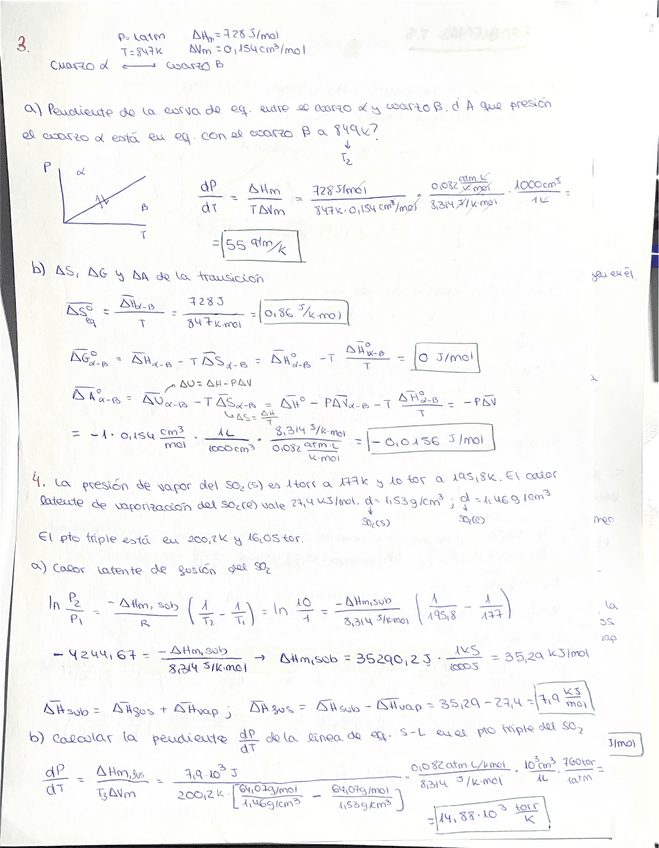 3.
P=1atm ΔHm=728 J/mol
T=847K ΔVm=0,154 cm³/mol
Cuarzo α ⟷ cuarzo B
a) Pendiente de la curva de eq. entre el cuarzo α y cuarzo B. d A que presión
el cuarzo α está en eq. con el cuarzo B a 849K?
↓
T₂
P α B T
dP/dT = ΔHm/TΔVm = 728 J/mol / 847K·0,154 cm³/mol · 0,082 atm·L/K·mol / 8,314 J/K·mol · 1000cm³/1L =
= 55 atm/K
b) ΔS, ΔG y ΔA de la transición
ΔS̄°eq = ΔH̄α-B/T = 728 J/847K·mol = 0,86 J/K·mol
ΔḠ°α-B = ΔH̄α-B − TΔS̄α-B = ΔH̄°α-B − T ΔH̄°α-B/T = 0 J/mol
ΔU = ΔH - PΔV
ΔĀ°α-B = ΔŪα-B − TΔS̄α-B = ΔH̄° − PΔV̄α-B − T ΔH̄°α-B/T = −PΔV̄
↳ΔS = ΔH/T
= −1·0,154 cm³/mol · 1L/1000cm³ · 8,314 J/K·mol / 0,082 atm·L/K·mol = −0,0156 J/mol
4. La presión de vapor del SO₂(s) es 1torr a 177K y 10 tor a 195,8K. El calor
latente de vaporización del SO₂(e) vale 27,4 KJ/mol. d=1,53g/cm³; d=1,46 g/cm³
SO₂(s) SO₂(e)
El pto triple está en 200,2K y 16,05 tor.
a) Calor latente de fusión del SO₂
ln P₂/P₁ = −ΔHm,sub/R (1/T₂ − 1/T₁) = ln 10/1 = −ΔHm,sub / 8,314 J/K·mol (1/195,8 − 1/177)
−4244,67 = −ΔHm,sub / 8,314 J/K·mol → ΔHm,sub = 35290,2 J · 1KJ/1000J = 35,29 KJ/mol
ΔH̄sub = ΔH̄fus + ΔH̄vap; ΔH̄fus = ΔH̄sub − ΔH̄vap = 35,29 − 27,4 = 7,9 KJ/mol
b) Calcular la pendiente dP/dT de la línea de eq. S-L en el pto triple del SO₂
dP/dT = ΔHm,fus/T₃ΔVm = 7,9·10³ J / 200,2K·[64,07g/mol / 1,46g/cm³ − 64,07g/mol / 1,53g/cm³] · 0,082 atm L/Kmol / 8,314 J/K·mol · 10³cm³/1L · 760tor/1atm =
= 14,88·10³ torr/K
J/mol